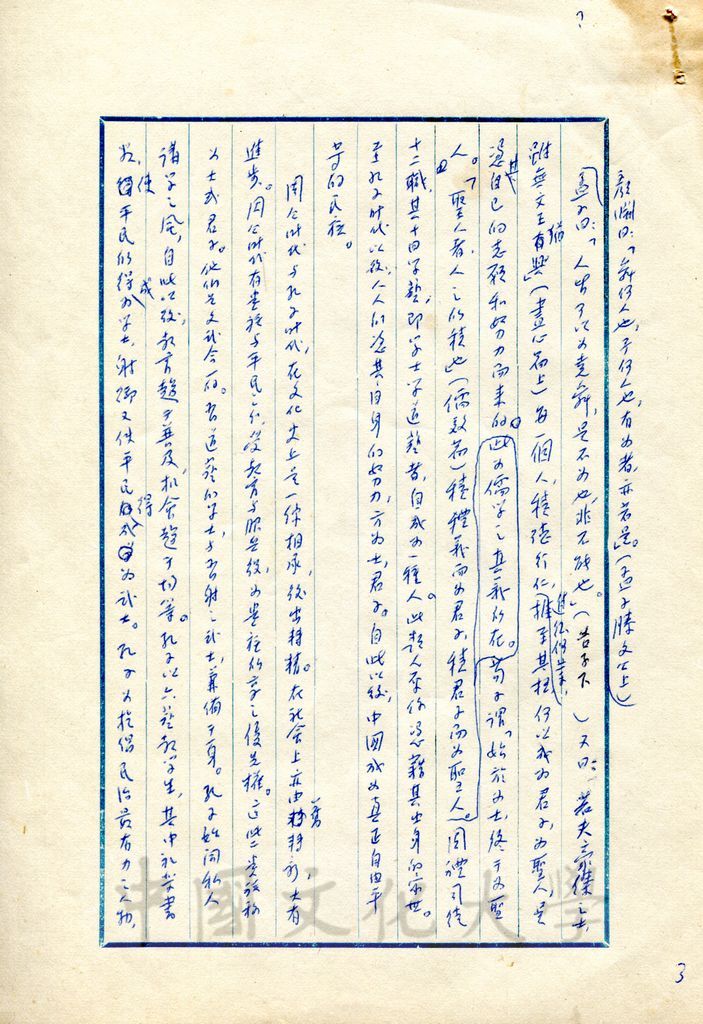 顏淵曰:「舜何人也,予何人也,有為者亦若是。」(孟子滕文公上)
孟子曰:「人皆可以為堯舜,是不為也,非不能也。」(告子下)又曰:「若夫豪傑之士,
雖無文王猶有興」(盡心篇上)每一個人,積德行仁,推至其極何以成為君子,為聖人,是
憑其自己的志願和努力而來的。此為儒學之真義所在。荀子謂「始於為士,終于為聖
人。」「聖人者,人之所積也」(儒效篇)積禮義而為君子,積君子而為聖人。周禮司徒
十二職,其十曰學藝,即學士學道藝者,自成為一種人。此類人不你憑藉其出身的家世。
至孔子時代以後,人人們憑其自身的努力,方為士,君子。自此以後,中國成為真正自由平
等的民族。
周公時代與孔子時代,在文化史上是一條相承,後出轉精。在社會上亦由舊轉新,大有
進步。周公時代有貴族與平民之分,受教育與服兵役,為貴族所享之優先權。這些貴族稱
為士或君子。他們是文武合一的。習道藝的學士,與習射之武士,兼備于一身。孔子始開私人
講學之風,自此以後,教育趨于普及,机会趨于均等。孔子以六藝教學生,其中礼樂書
數,使平民們得成為學士,射御又使平民得成為武士。孔子為提倡民治最有力之人物,
3
中國文化大學